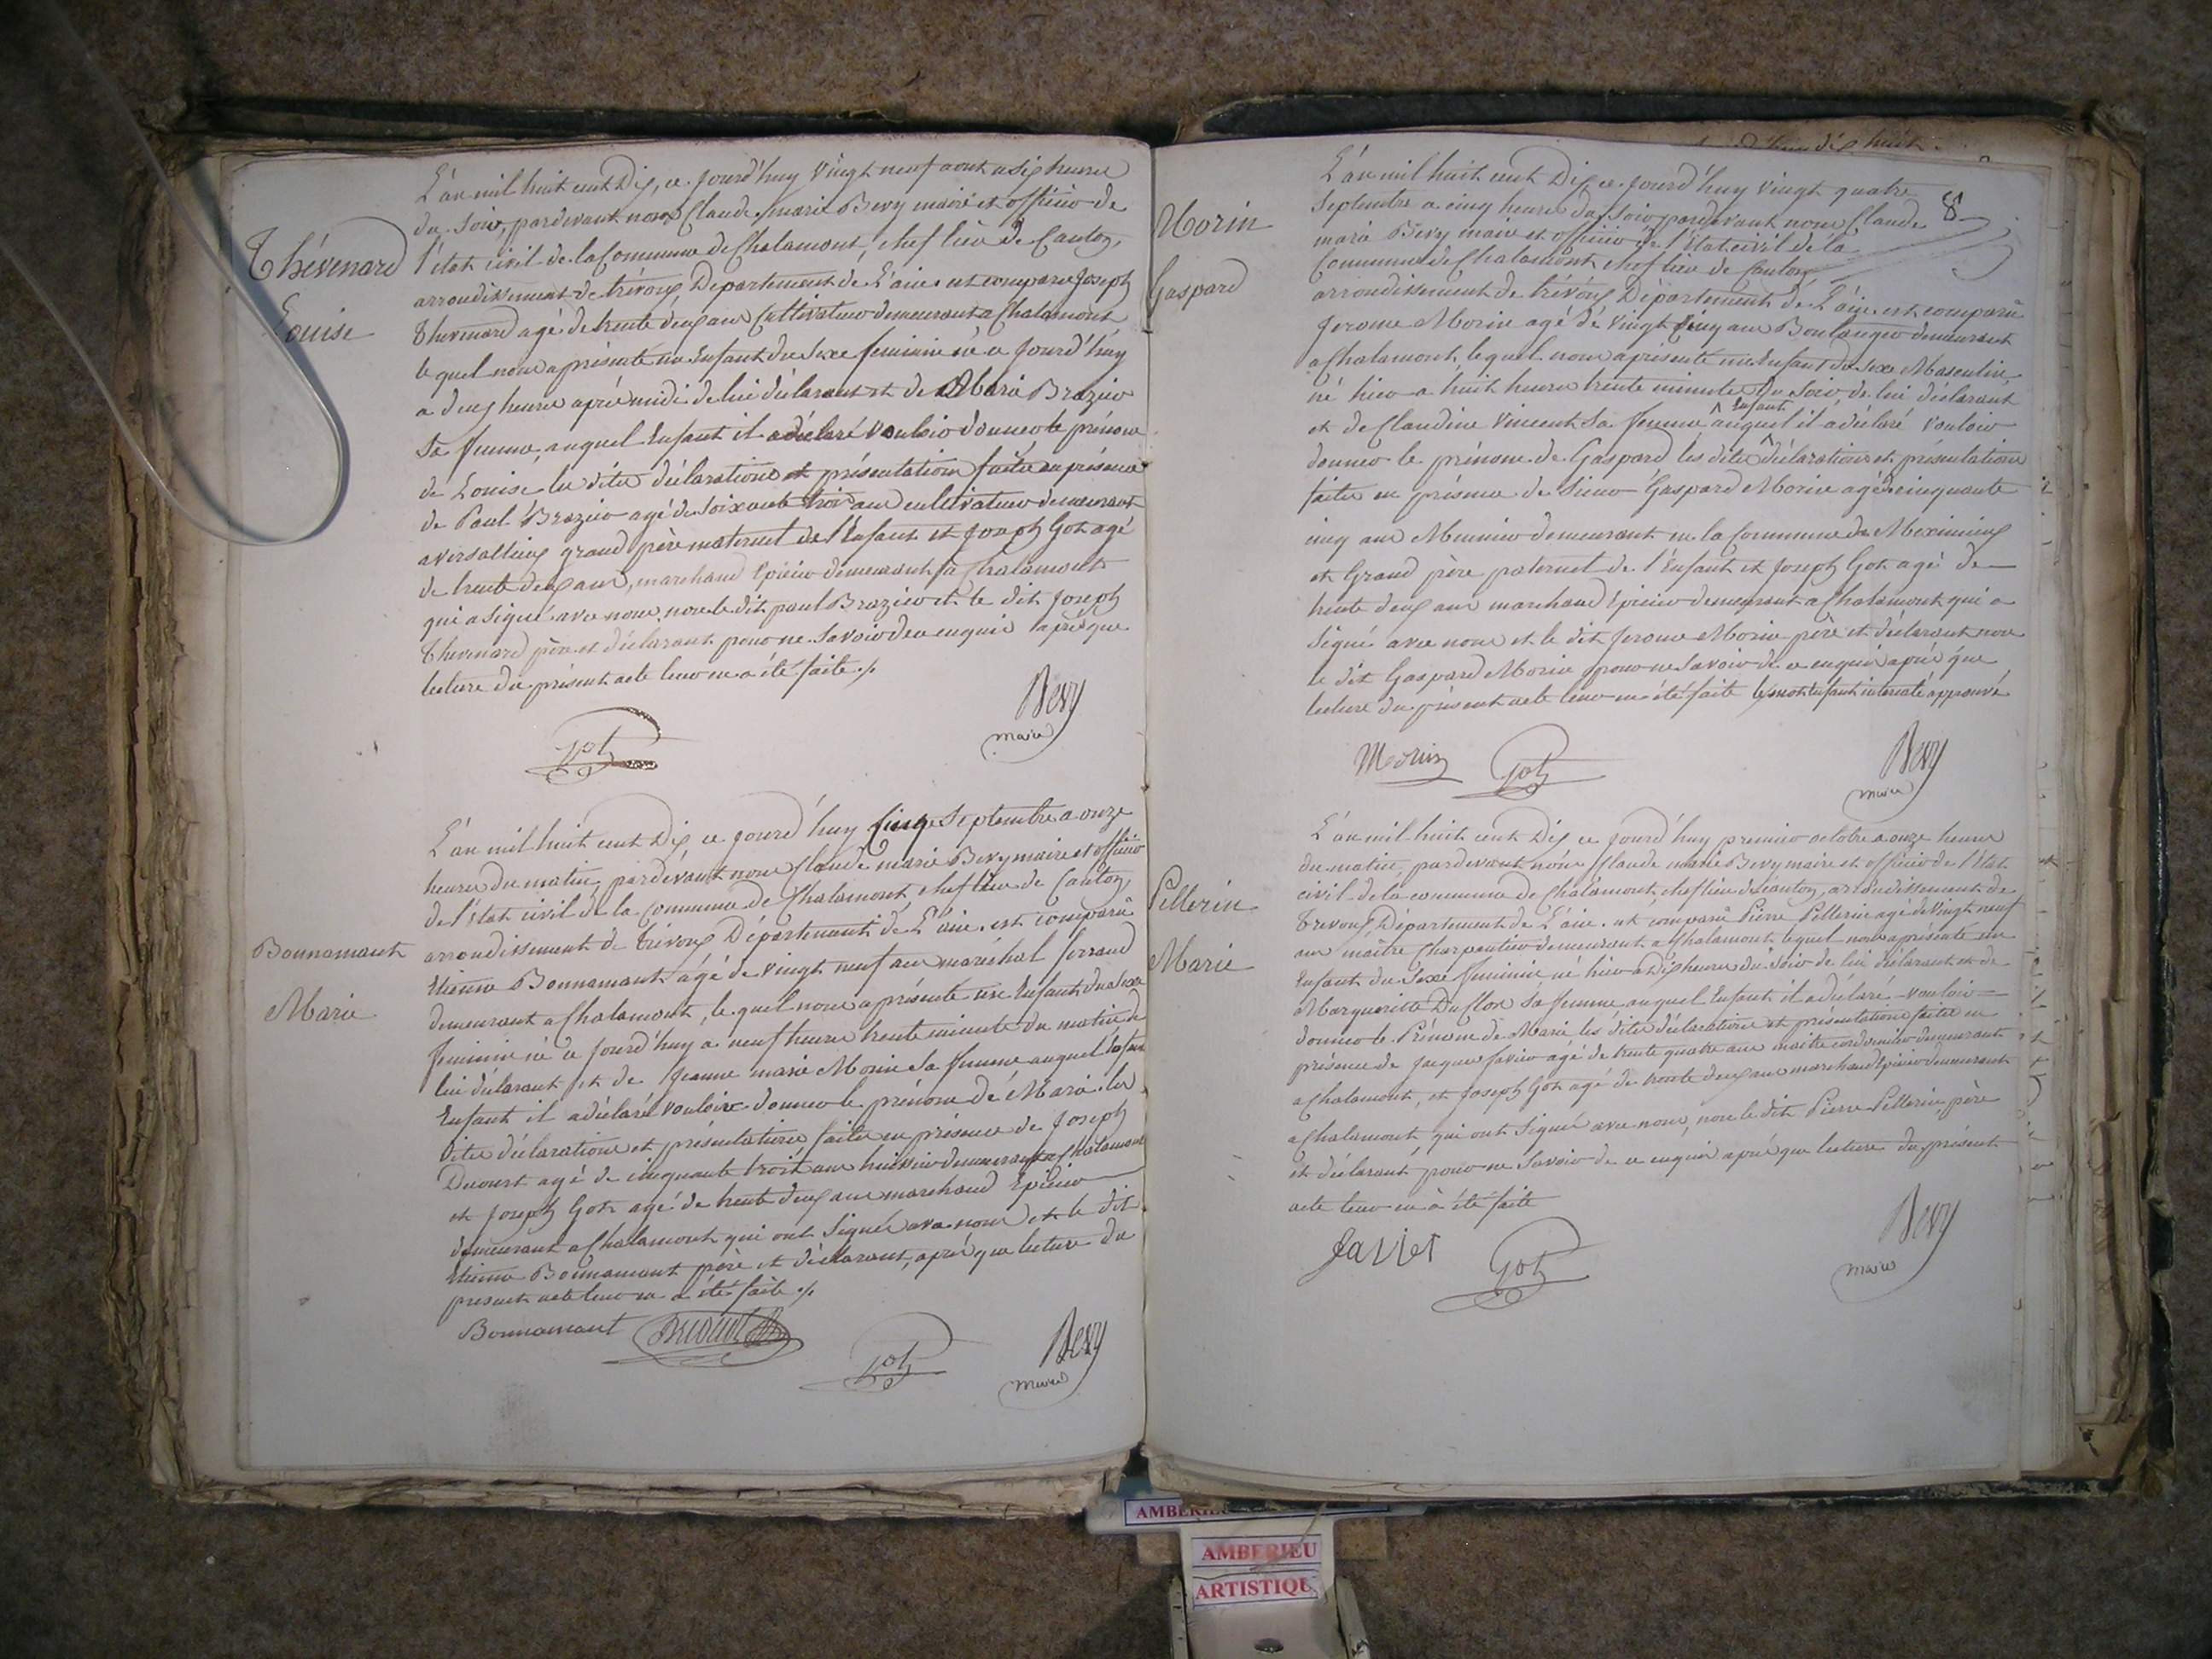 L'an mil huit cent Dix, ce jourd'huy vingt neuf aout a six heures
du soir, pardevant nous Claude marie Bevy maire et officier de
l'état civil de la Commune de Chalamont, chef lieu de Canton,
arrondissement de trévoux, Département de L'ain. est comparu Joseph
Thevenard agé de trente deux ans Cultivateur demeurant a Chalamont
lequel nous a présenté un Enfant du Sexe feminin né ce jourd'huy
a deux heures après midi de lui déclarant et de Marie Brazier
Sa femme, auquel Enfant il a déclaré vouloir donner le prénom
de Louise les dites déclarations et présentations faites en présence
de Paul Brazier agé de soixante trois ans cultivateur demeurant
a versallieux grand père maternel de l'Enfant et Joseph Got agé
de trente deux ans, marchand Epicier demeurant a Chalamont
qui a signé avec nous, non le dit paul Brazier et le dit Joseph
Thevenard père et déclarant pour ne savoir de ce enquis après que
lecture du présent acte leur en a été faite ./.
Thévenard
Louise
Got
Bevy
maire
L'an mil huit cent Dix ce jourd'huy Cinq Septembre a onze
heures du matin, pardevant nous Claude marie Bevy maire et officier
de l'état civil de la Commune de Chalamont, chef lieu de Canton,
arrondissement de trévoux Département de L'ain. est comparu
Etienne Bonnamant agé de vingt neuf ans maréchal ferrand
demeurant a Chalamont, lequel nous a présenté un Enfant du Sexe
feminin né ce jourd'huy a neuf heures trente minutes du matin de
lui déclarant et de Jeanne marie Morin sa femme auquel
Enfant il a déclaré vouloir donner le prénom de Marie. les
dites déclarations et présentations faites en présence de Joseph
Ducourt agé de cinquante trois ans huissier demeurant a Chalamont
et Joseph Got agé de trente deux ans marchand Epicier
demeurant a Chalamont qui ont signés avec nous et le dit
Etienne Bonnamant père et déclarant, après que lecture du
present acte leur en a été faite ./.
Bonnamant
Marie
Bonnamant
Got
Bevy
maire
8
L'an mil huit cent Dix ce jourd'huy vingt quatre
Septembre a cinq heures du soir pardevant nous Claude
marie Bevy maire et officier de l'état civil de la
Commune de Chalamont chef lieu de Canton
arrondissement de trévoux Département de L'ain. est comparu
Jerome Morin agé de vingt Cinq ans Boulanger demeurant
a Chalamont, lequel nous a présenté un Enfant du sexe Masculin
né hier a huit heures trente minutes du soir de lui déclarant
et de Claudine Vincent sa femme, auquel Enfant il a déclaré vouloir
donner le prénom de Gaspard les dites déclarations et présentations
faites en présence de Sieur Gaspard Morin agé de cinquante
cinq ans Meunier demeurant en la Commune de Meximieux
et Grand père paternel de l'Enfant et Joseph Got agé de
trente deux ans marchand Epicier demeurant a Chalamont qui a
signé avec nous et le dit Jerome Morin père et déclarant non
le dit Gaspard Morin pour ne savoir de ce enquis après que
lecture du présent acte leur en été faite le mot Enfant intercalé approuvé
Morin
Gaspard
Morin
Got
Bevy
maire
L'an mil huit cent Dix ce jourd'huy premier octobre a onze heures
du matin, pardevant nous Claude marie Bevy maire et officier de l'état
civil de la commune de Chalamont, chef lieu de canton, arrondissement de
Trevoux Département de L'ain. est comparu Pierre Pellerin agé de vingt neuf
ans maître Charpentier demeurant a Chalamont lequel nous a présenté un
Enfant du Sexe feminin, né hier a Dix heures du soir de lui déclarant et de
Margueritte Duclos sa femme auquel Enfant il a déclaré vouloir
donner le Prénom de Marie les dites déclarations et présentations faites en
présence de Jacques Javier agé de trente quatre ans maitre cordonnier demeurant
a Chalamont, et Joseph Got agé de trente deux ans marchand Epicier demeurant
a Chalamont, qui ont signé avec nous, non le dit Pierre Pellerin, père
et déclarant, pour ne savoir de ce enquis après que lecture du présent
acte leur en a été faite
Pellerin
Marie
Got
Bevy
maire
AMBERIEU
ARTISTIQUE